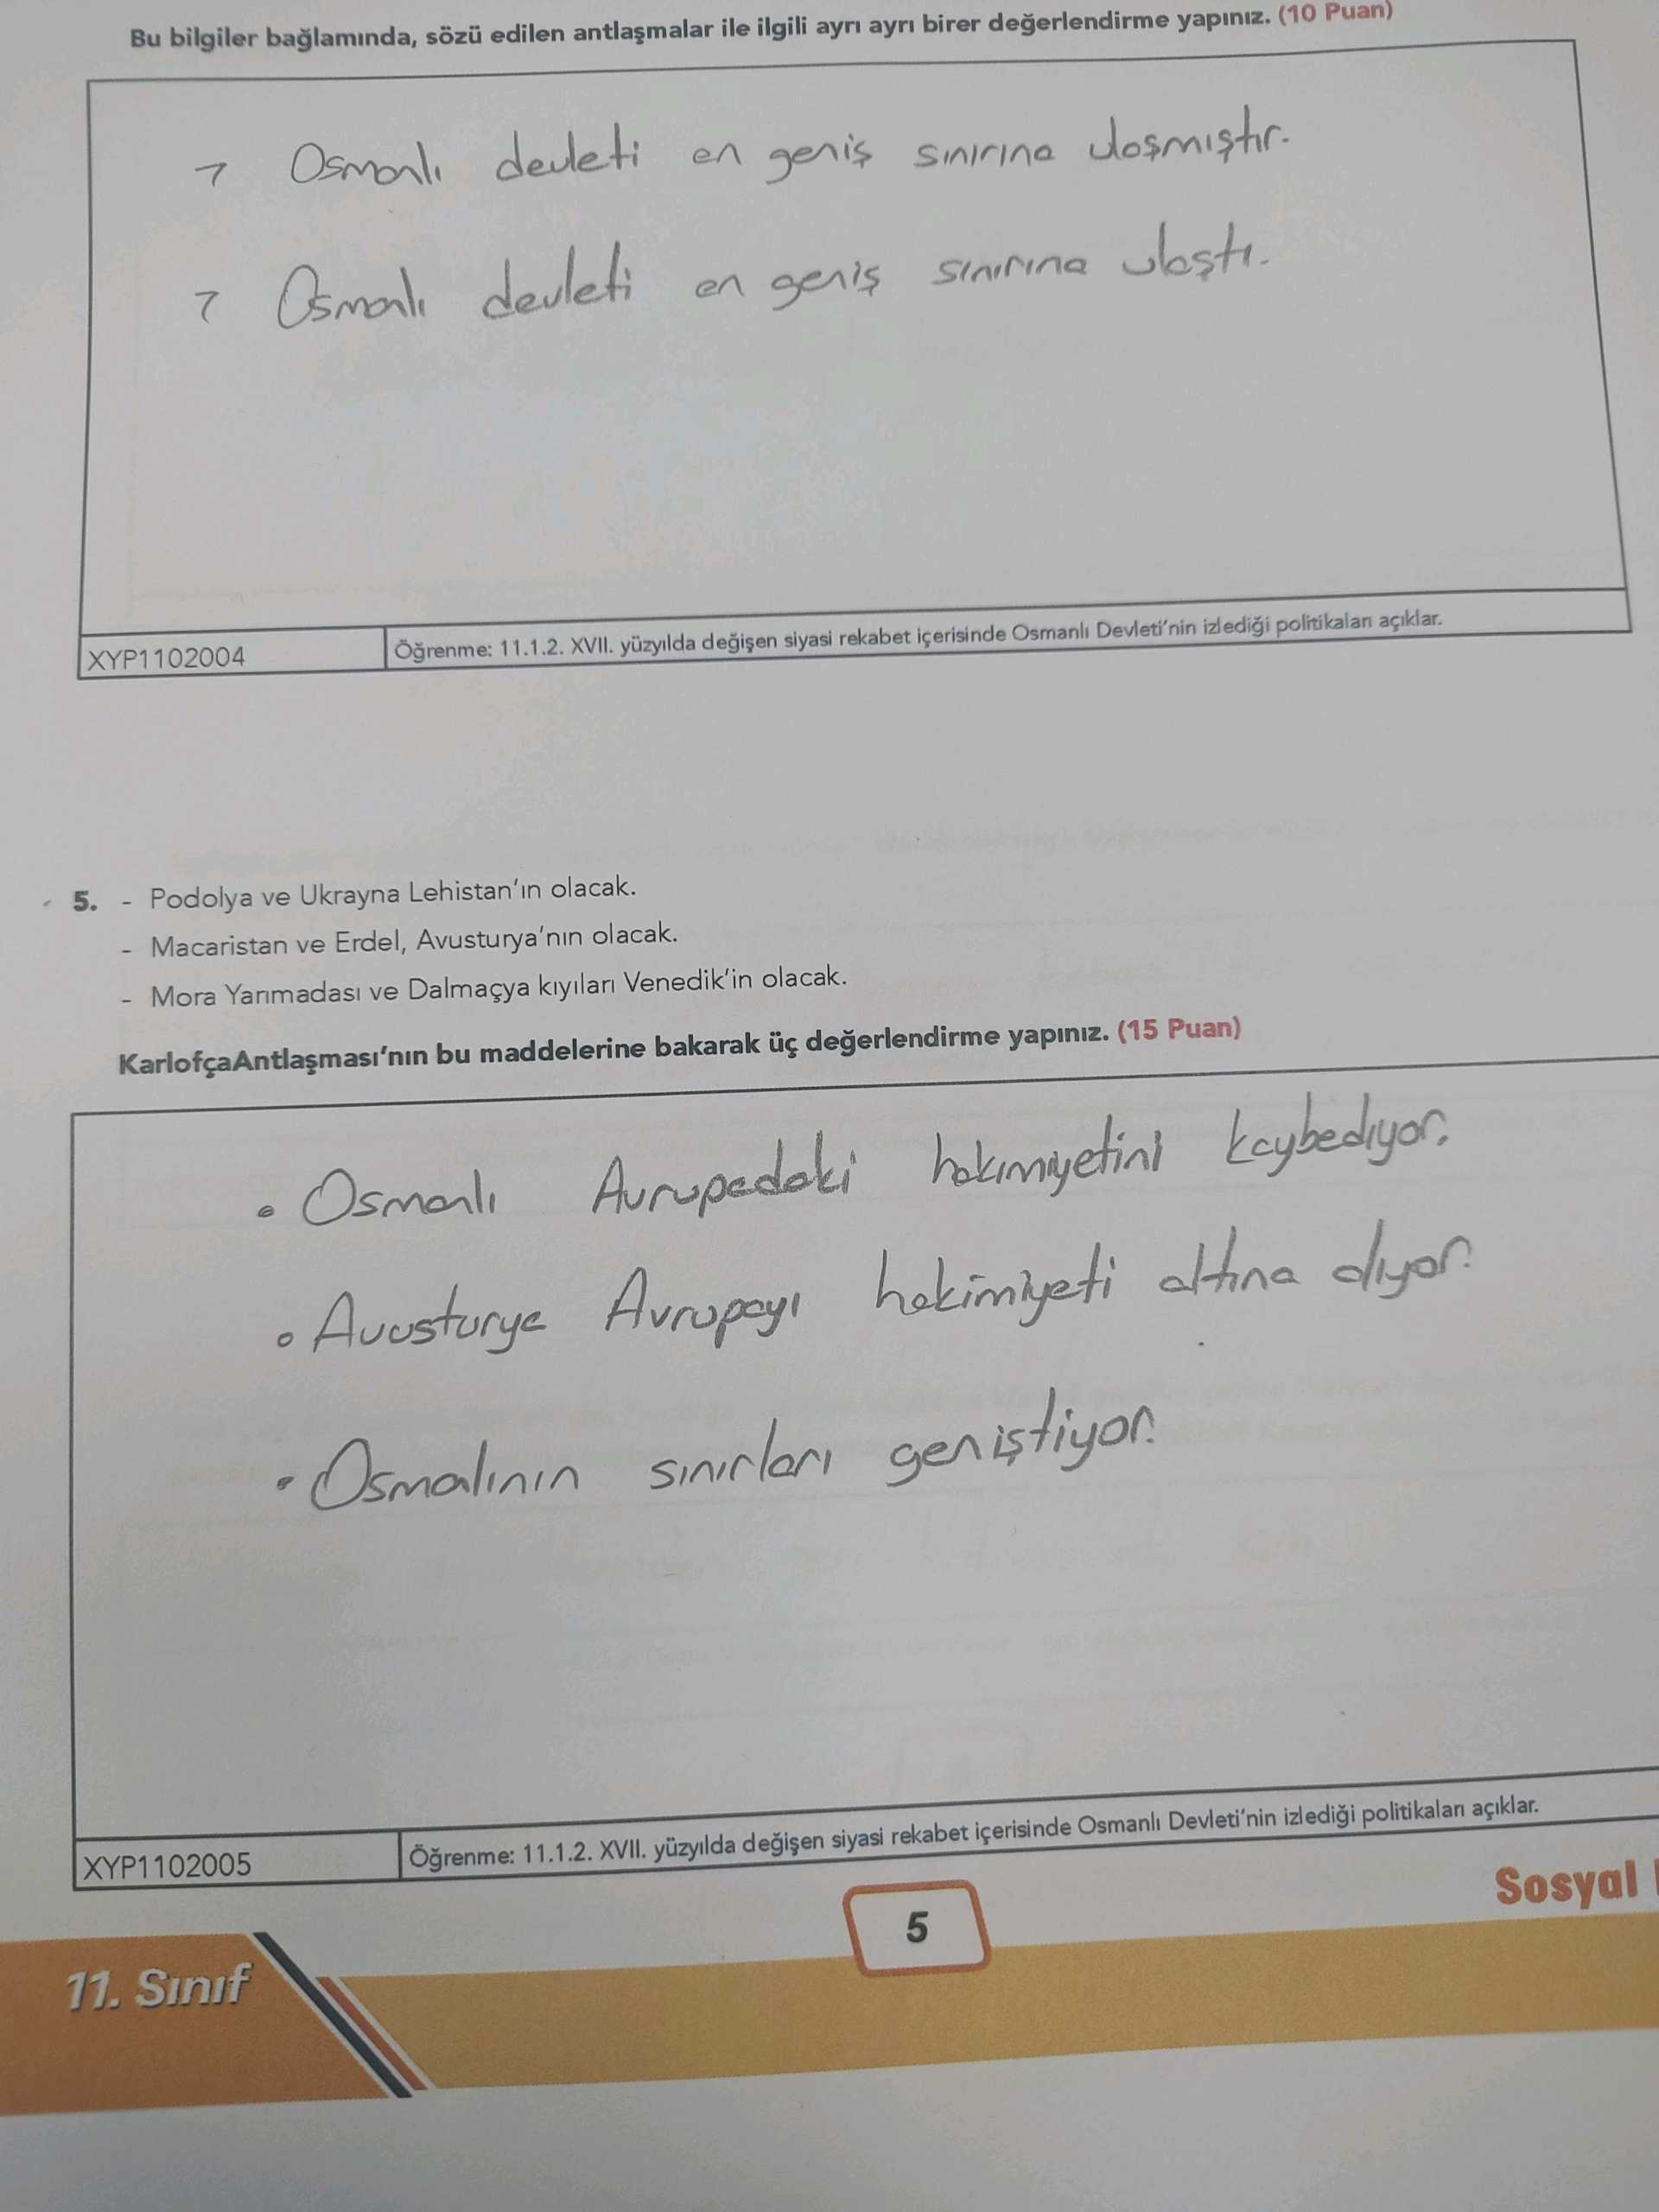 Bu bilgiler bağlamında, sözü edilen antlaşmalar ile ilgili ayrı ayrı birer değerlendirme yapınız. (10 Puan)
→ Osmanlı devleti en geniş sınırına ulaşmıştır.
→ Osmanlı devleti en geniş sınırına ulaştı.
XYP1102004
Öğrenme: 11.1.2. XVII. yüzyılda değişen siyasi rekabet içerisinde Osmanlı Devleti'nin izlediği politikaları açıklar.
5. - Podolya ve Ukrayna Lehistan'ın olacak.
- Macaristan ve Erdel, Avusturya'nın olacak.
- Mora Yarımadası ve Dalmaçya kıyıları Venedik'in olacak.
KarlofçaAntlaşması'nın bu maddelerine bakarak üç değerlendirme yapınız. (15 Puan)
• Osmanlı Avrupadaki hakimiyetini kaybediyor.
• Avusturya Avrupayı hakimiyeti altına alıyor.
• Osmalının sınırları geniştiyor.
XYP1102005
Öğrenme: 11.1.2. XVII. yüzyılda değişen siyasi rekabet içerisinde Osmanlı Devleti'nin izlediği politikaları açıklar.
Sosyal
5
11. Sınıf